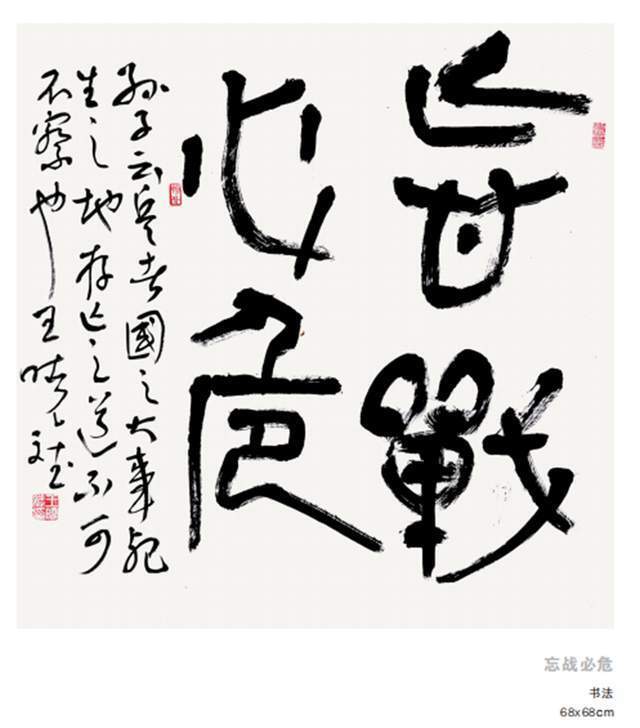 忘戰
必危
孫子云兵者國之大事死
生之地存亡之道不可
不察也 王
忘战必危
书法
68x68cm